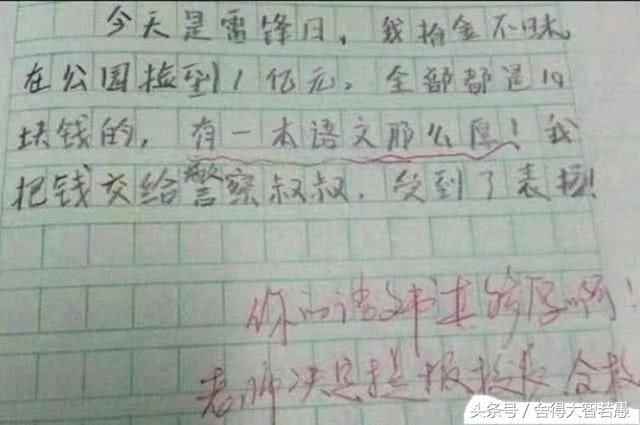 今天是雷锋日，我拾金不昧，
在公园捡到1亿元。全部都是10
块钱的，有一本语文那么厚！我
把钱交给警察叔叔，受到了表扬！
你的语文书真够厚啊！
老师决定提报校长 合影
头条号／舍得大智若愚